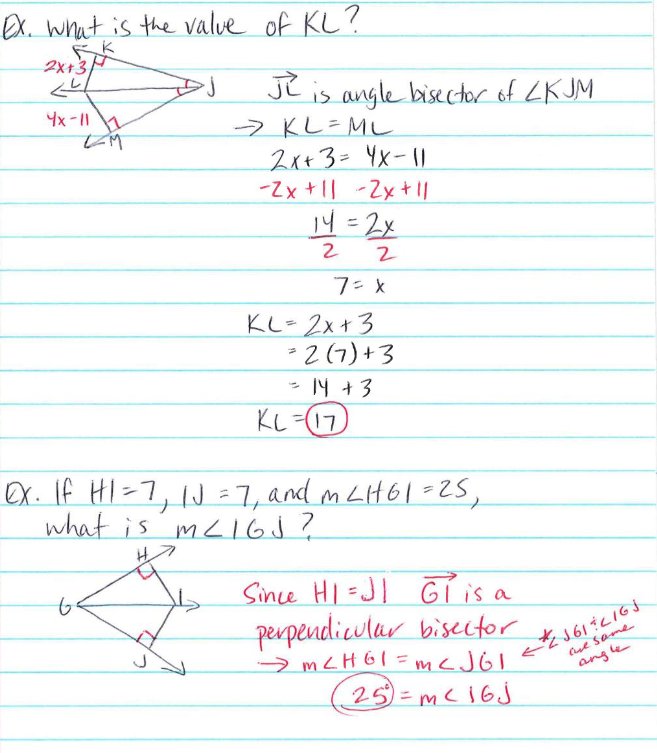 Ex. What is the value of KL?
K
2x+3
L
J
4x-11
M
JL is angle bisector of ∠KJM
→ KL = ML
2x+3 = 4x-11
-2x+11 -2x+11
14 = 2x
2 2
7 = x
KL = 2x+3
= 2(7)+3
= 14 + 3
KL = 17
Ex. If HI=7, IJ=7, and m∠HGI=25,
what is m∠IGJ?
H
G
I
J
Since HI=JI GI is a
perpendicular bisector
→ m∠HGI = m∠JGI
25° = m∠IGJ
* ∠JGI + ∠IGJ
are same
angle